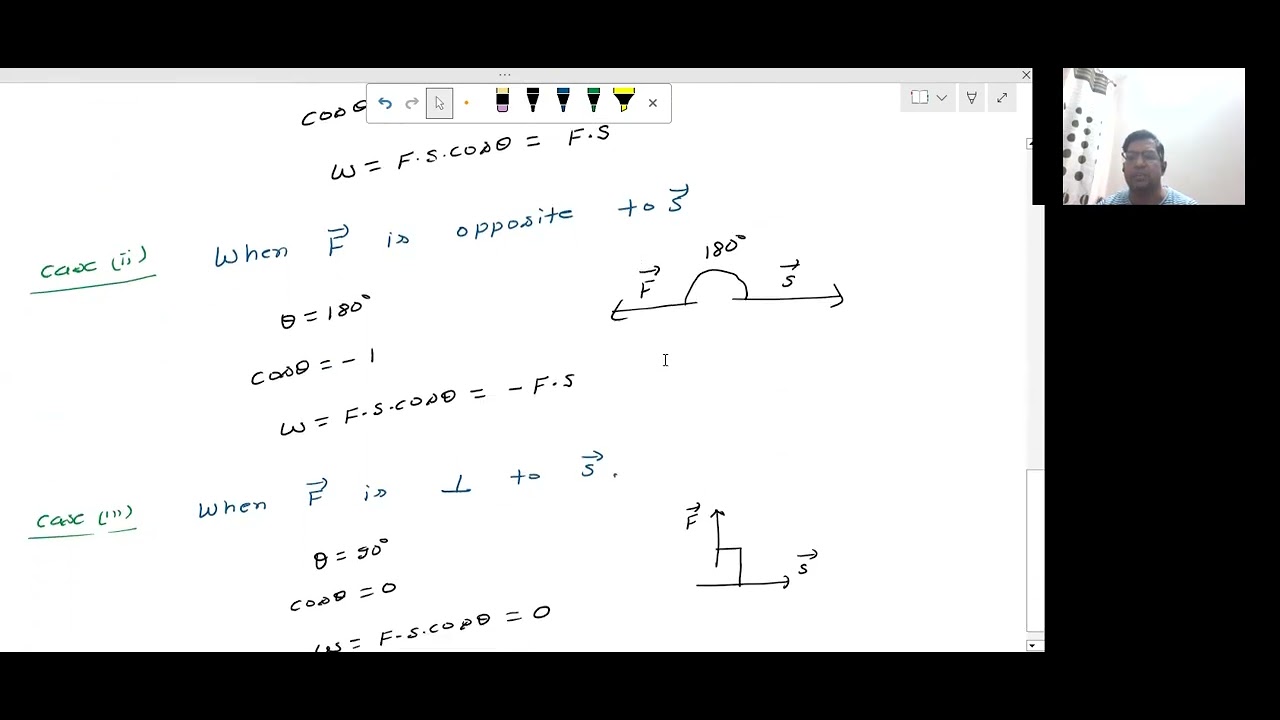 cosθ
W = F.S.cosθ = F.S
case (ii) When F⃗ is opposite to S⃗
180°
F⃗ S⃗
θ = 180°
cosθ = - 1
W = F.S.cosθ = - F.S
case (iii) When F⃗ is ⊥ to S⃗.
F⃗
S⃗
θ = 90°
cosθ = 0
W = F.S.cosθ = 0